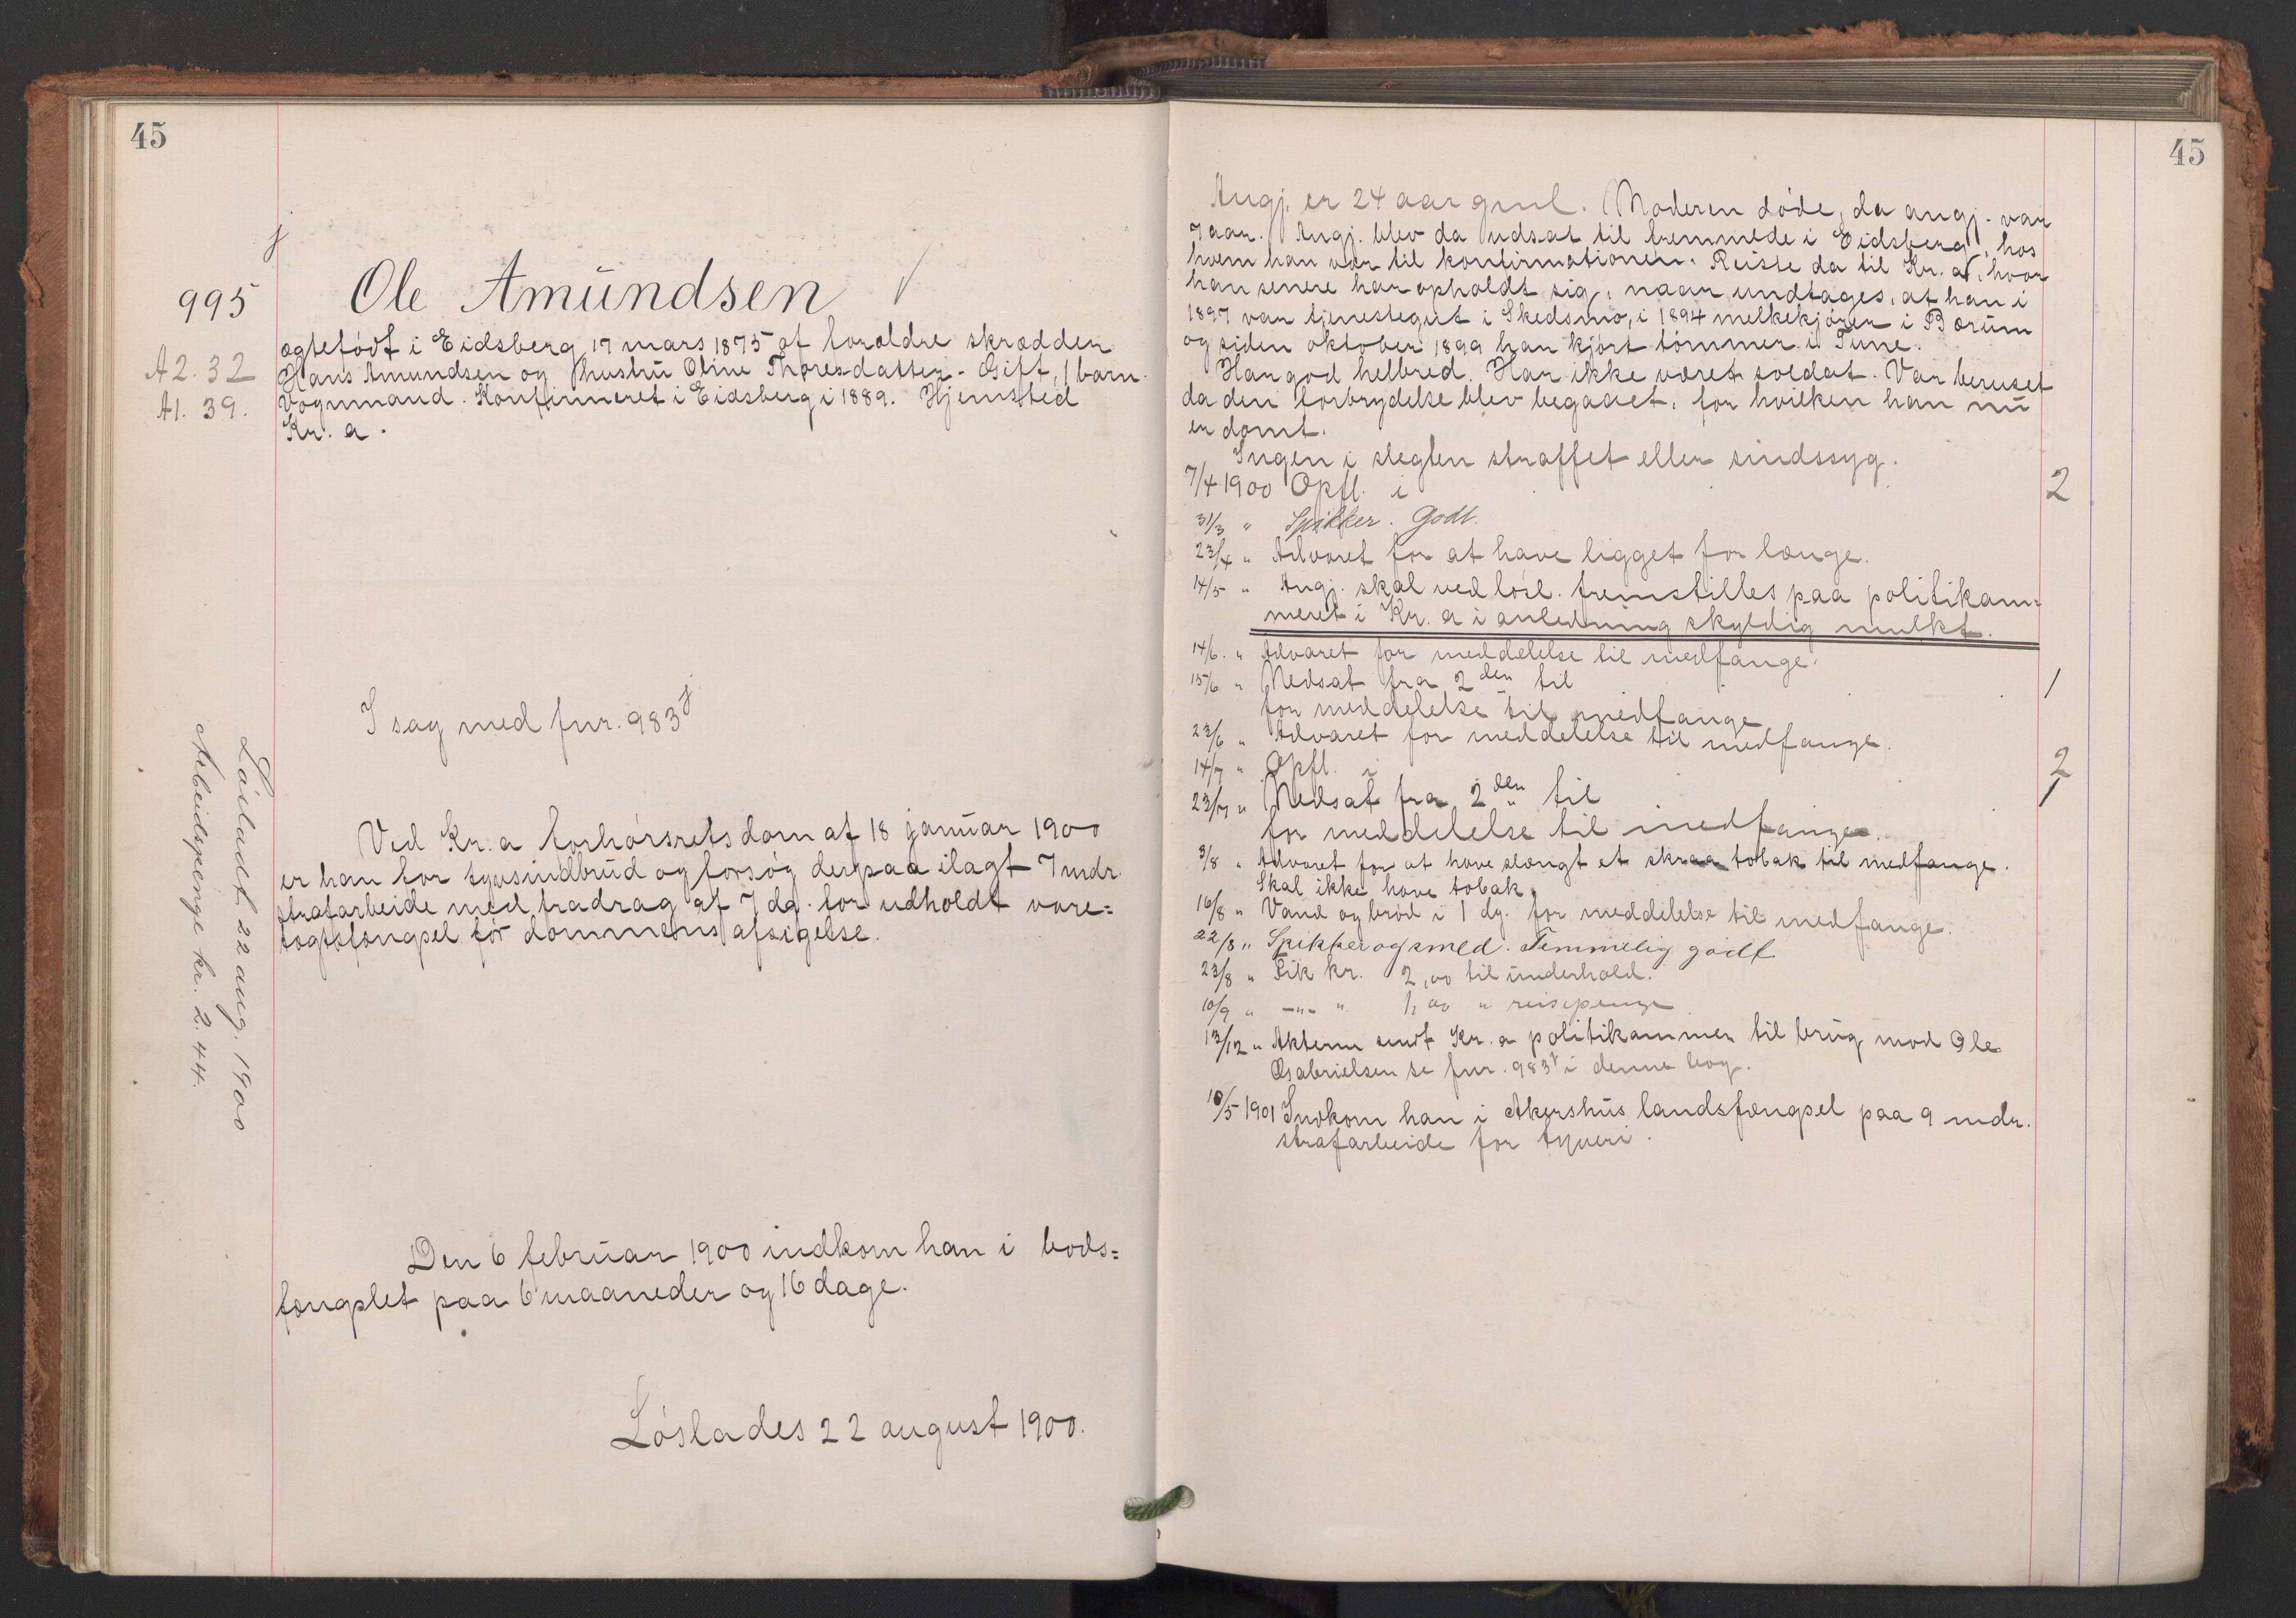 45
j
995
Ole Amundsen
ægtefødt i Eidsberg 17 mars 1875 af forældre skrædder
A2. 32
Hans Amundsen og hustru Oline Thoresdatter. Gift, 1 barn.
A1. 39.
Vognmand. Konfirmeret i Eidsberg i 1889. Hjemsted
Kr. a.
I sag med fnr. 983 j
Ved Kr. a forhørsrets dom af 18 januar 1900
er han for tyvsindbrud og forsøg derpaa ilagt 7 mdr.
strafarbeide med fradrag af 7 dg. for udholdt vare=
tægtsfængsel før dommens afsigelse.
Løsladt 22 aug. 1900
Arbeidspenge kr. 2.44.
Den 6 februar 1900 indkom han i bods=
fængslet paa 6 maaneder og 16 dage.
Løslades 22 august 1900.
45
Angj. er 24 aar gml. Moderen døde, da angj. var
7 aar. Angj. blev da udsat til fremmede i Eidsberg, hos
hvem han var til konfirmationen. Reiste da til Kr. a, hvor
han senere har opholdt sig, naar undtages, at han i
1897 var tjenestegut i Skedsmo, i 1894 melkekjører i Bærum
og siden oktober 1899 har kjørt tømmer i Tune.
Har god helbred. Har ikke været soldat. Var beruset
da den forbrydelse blev begaaet, for hvilken han nu
er dømt.
Ingen i slegten straffet eller sindssyg.
7/4 1900 Opfl. i 2
31/3 " Spikker. Godt.
23/4 " Advaret for at have ligget for længe.
14/5 " Angj. skal ved løsl. fremstilles paa politikam=
meret i Kr. a i anledning skyldig mulkt.
14/6. " Advaret for meddelelse til medfange.
15/6 " Nedsat fra 2den til 1
for meddelelse til medfange
23/6 " Advaret for meddelelse til medfange.
14/7 " Opfl. i 2
23/7 " Nedsat fra 2den til 1
for meddelelse til medfange.
3/8 " Advaret for at have slængt et skraa tobak til medfange.
Skal ikke have tobak.
16/8 " Vand og brød i 1 dg. for meddelelse til medfange.
22/8 " Spikker og smed. Temmelig godt
23/8 " Fik kr. 2,00 til underhold.
10/9 " -"- " 1,00 " reisepenge
13/12 " Akterne sendt Kr. a politikammer til brug mod Ole
Gabrielsen se fnr. 983 j i denne bog.
10/5 1901 Indkom han i Akershus landsfængsel paa 9 mdr.
strafarbeide for tyveri.